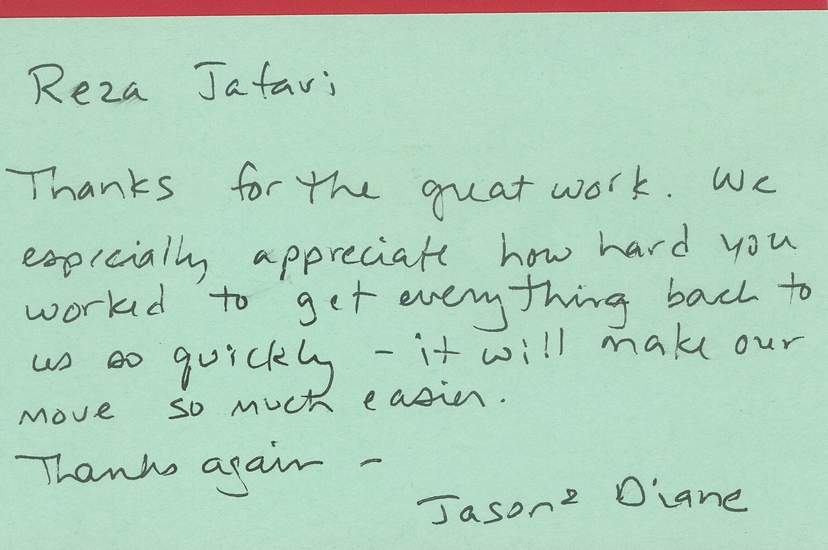 Reza Jafari
Thanks for the great work. We
especially appreciate how hard you
worked to get everything back to
us so quickly - it will make our
move so much easier.
Thanks again -
Jason & Diane